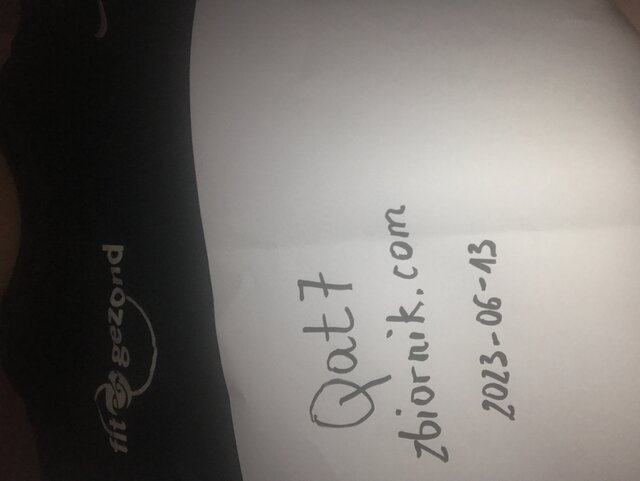 fit gezond
Qat7
zbiornik.com
2023-06-13